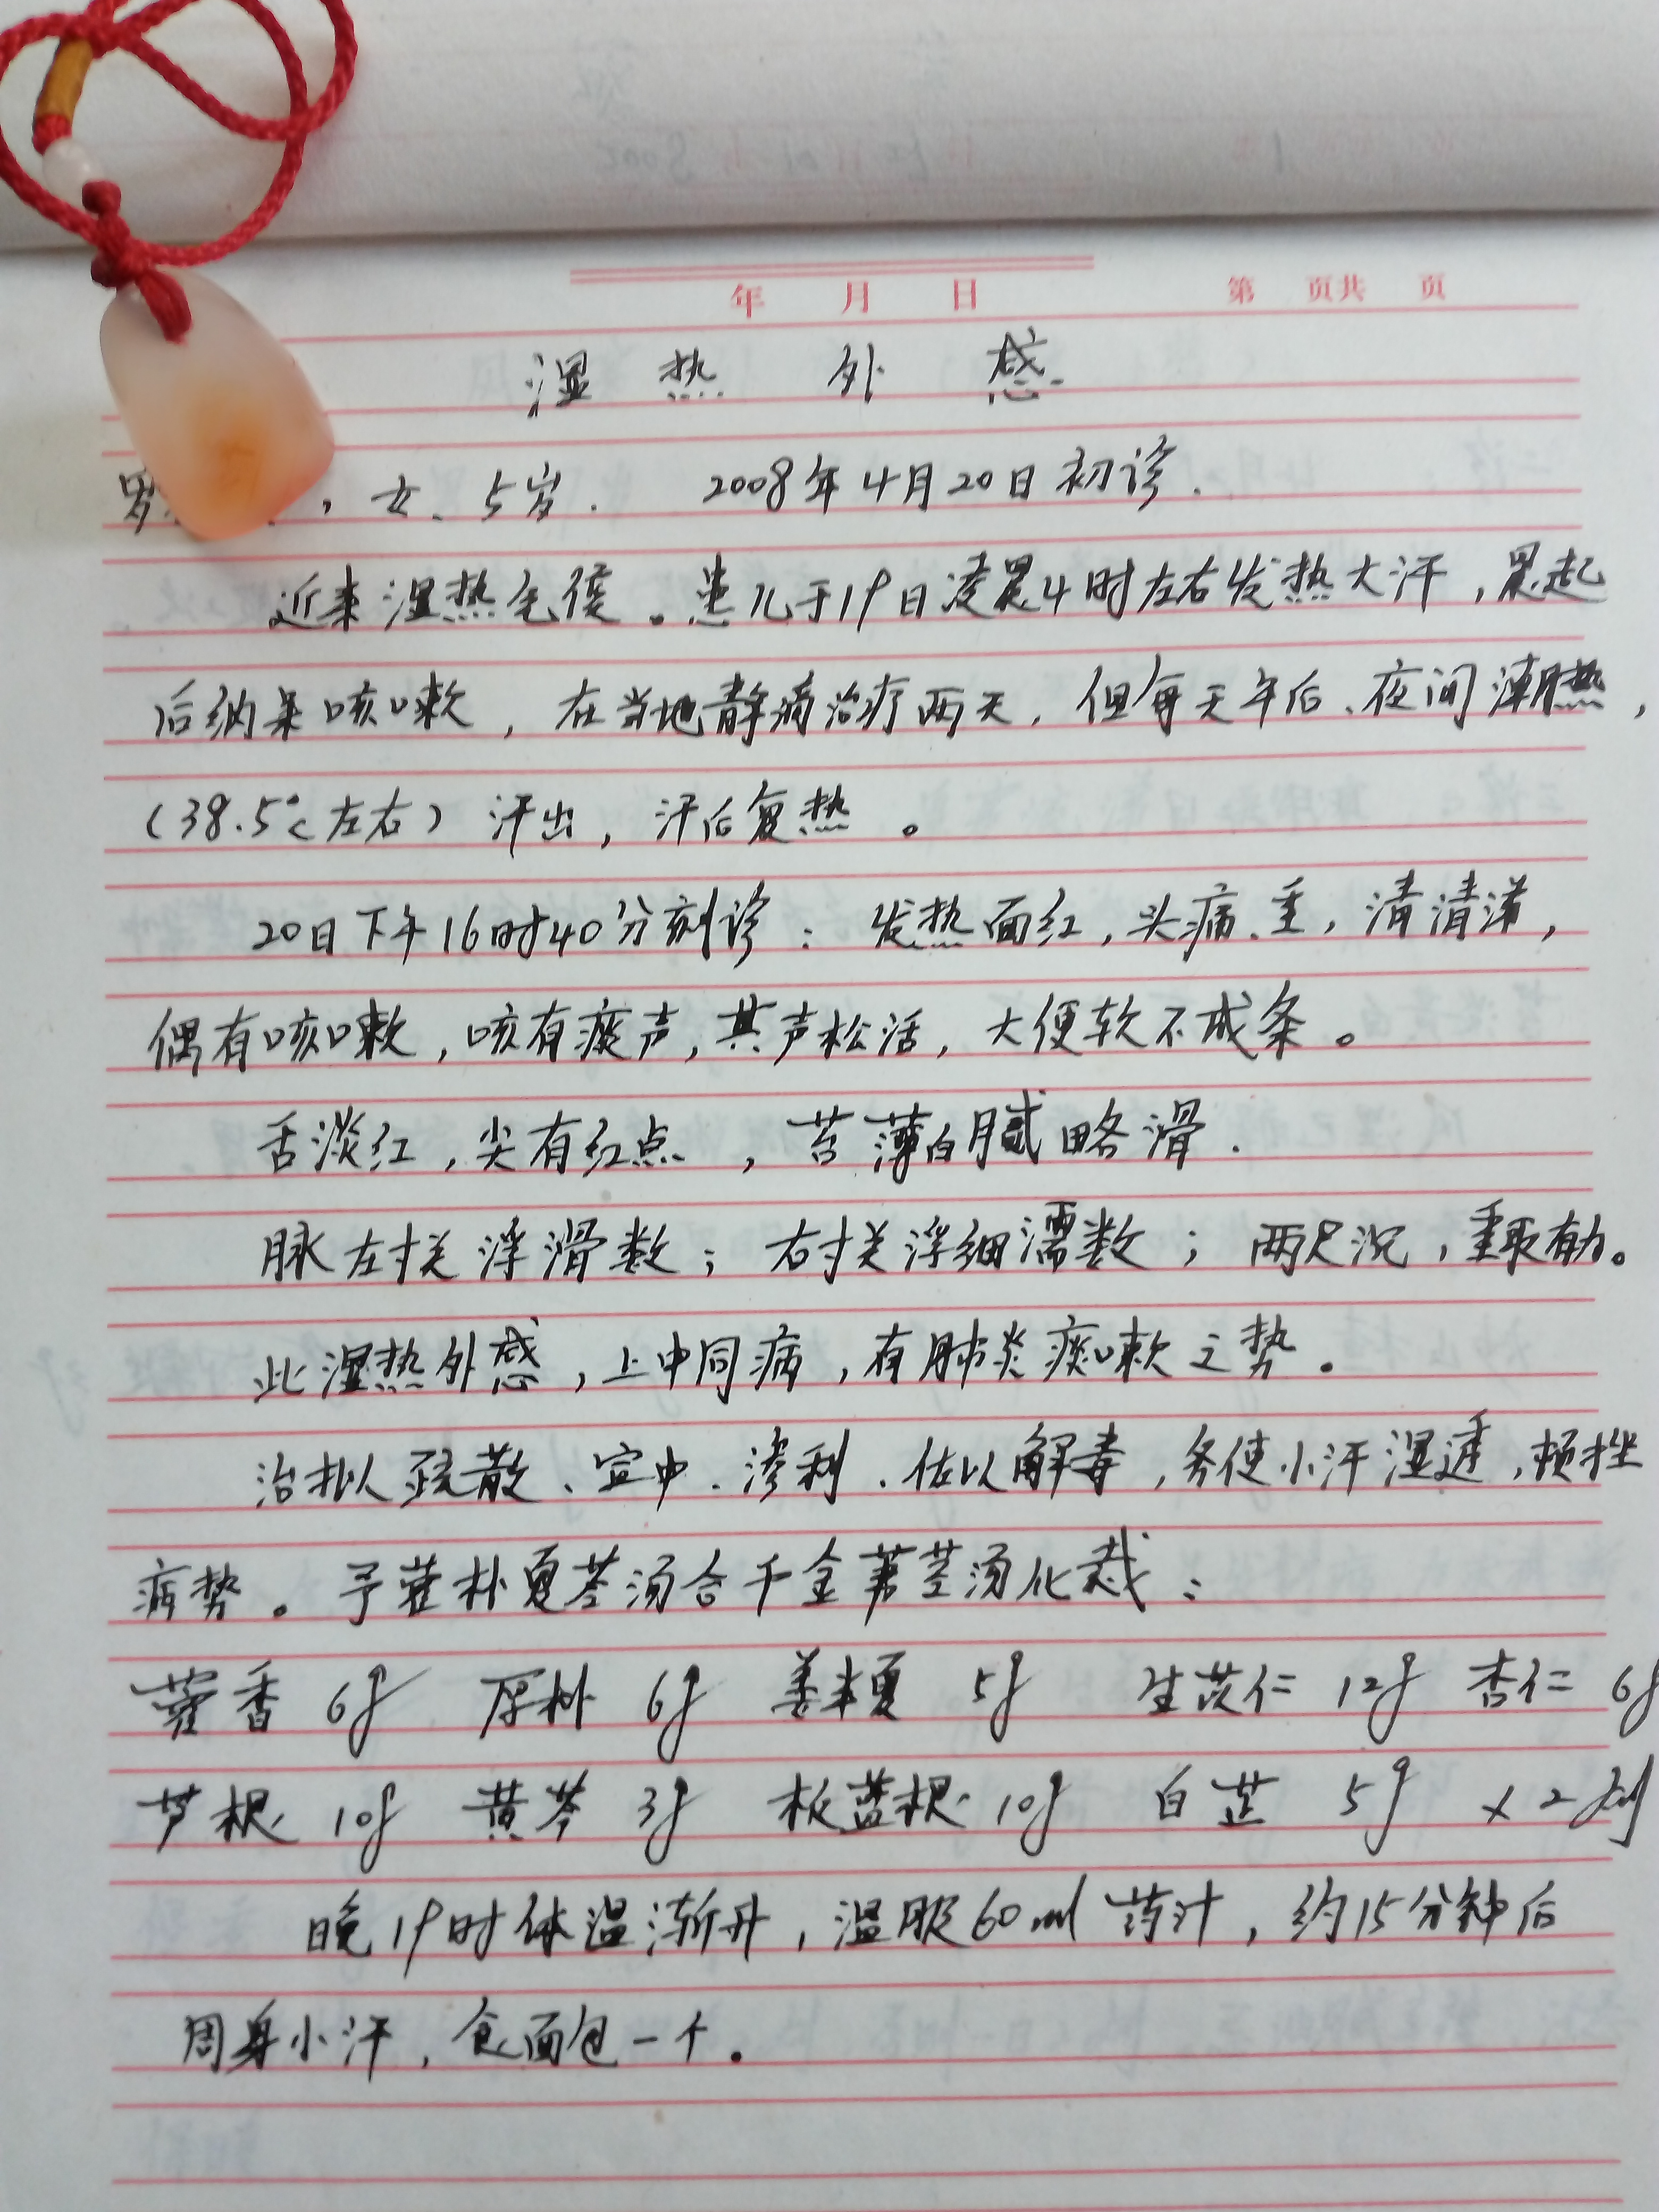 年 月 日 第 页共 页
湿热外感
罗 ，女、5岁. 2008年4月20日初诊.
近来湿热 。患儿于19日凌晨4时左右发热大汗，晨起
后纳呆咳嗽，在当地静滴治疗两天，但每天午后、夜间潮热，
(38.5℃左右) 汗出，汗后复热。
20日下午16时40分刻诊：发热面红，头痛、重，清清涕，
偶有咳嗽，咳有痰声，其声松活，大便软不成条。
舌淡红，尖有红点，苔薄白腻略滑.
脉左寸关浮滑数；右寸关浮细濡数；两尺沉，重取有力。
此湿热外感，上中同病，有肺炎痰嗽之势。
治拟疏散、宣中、渗利、佐以解毒，务使小汗湿透，顿挫
病势。予藿朴夏苓汤合千金苇茎汤化裁：
藿香 6g 厚朴 6g 姜半夏 5g 生苡仁 12g 杏仁 6g
芦根 10g 黄芩 3g 板蓝根 10g 白芷 5g ×2剂
晚19时体温渐升，温服60ml药汁，约15分钟后
周身小汗，食面包一个。